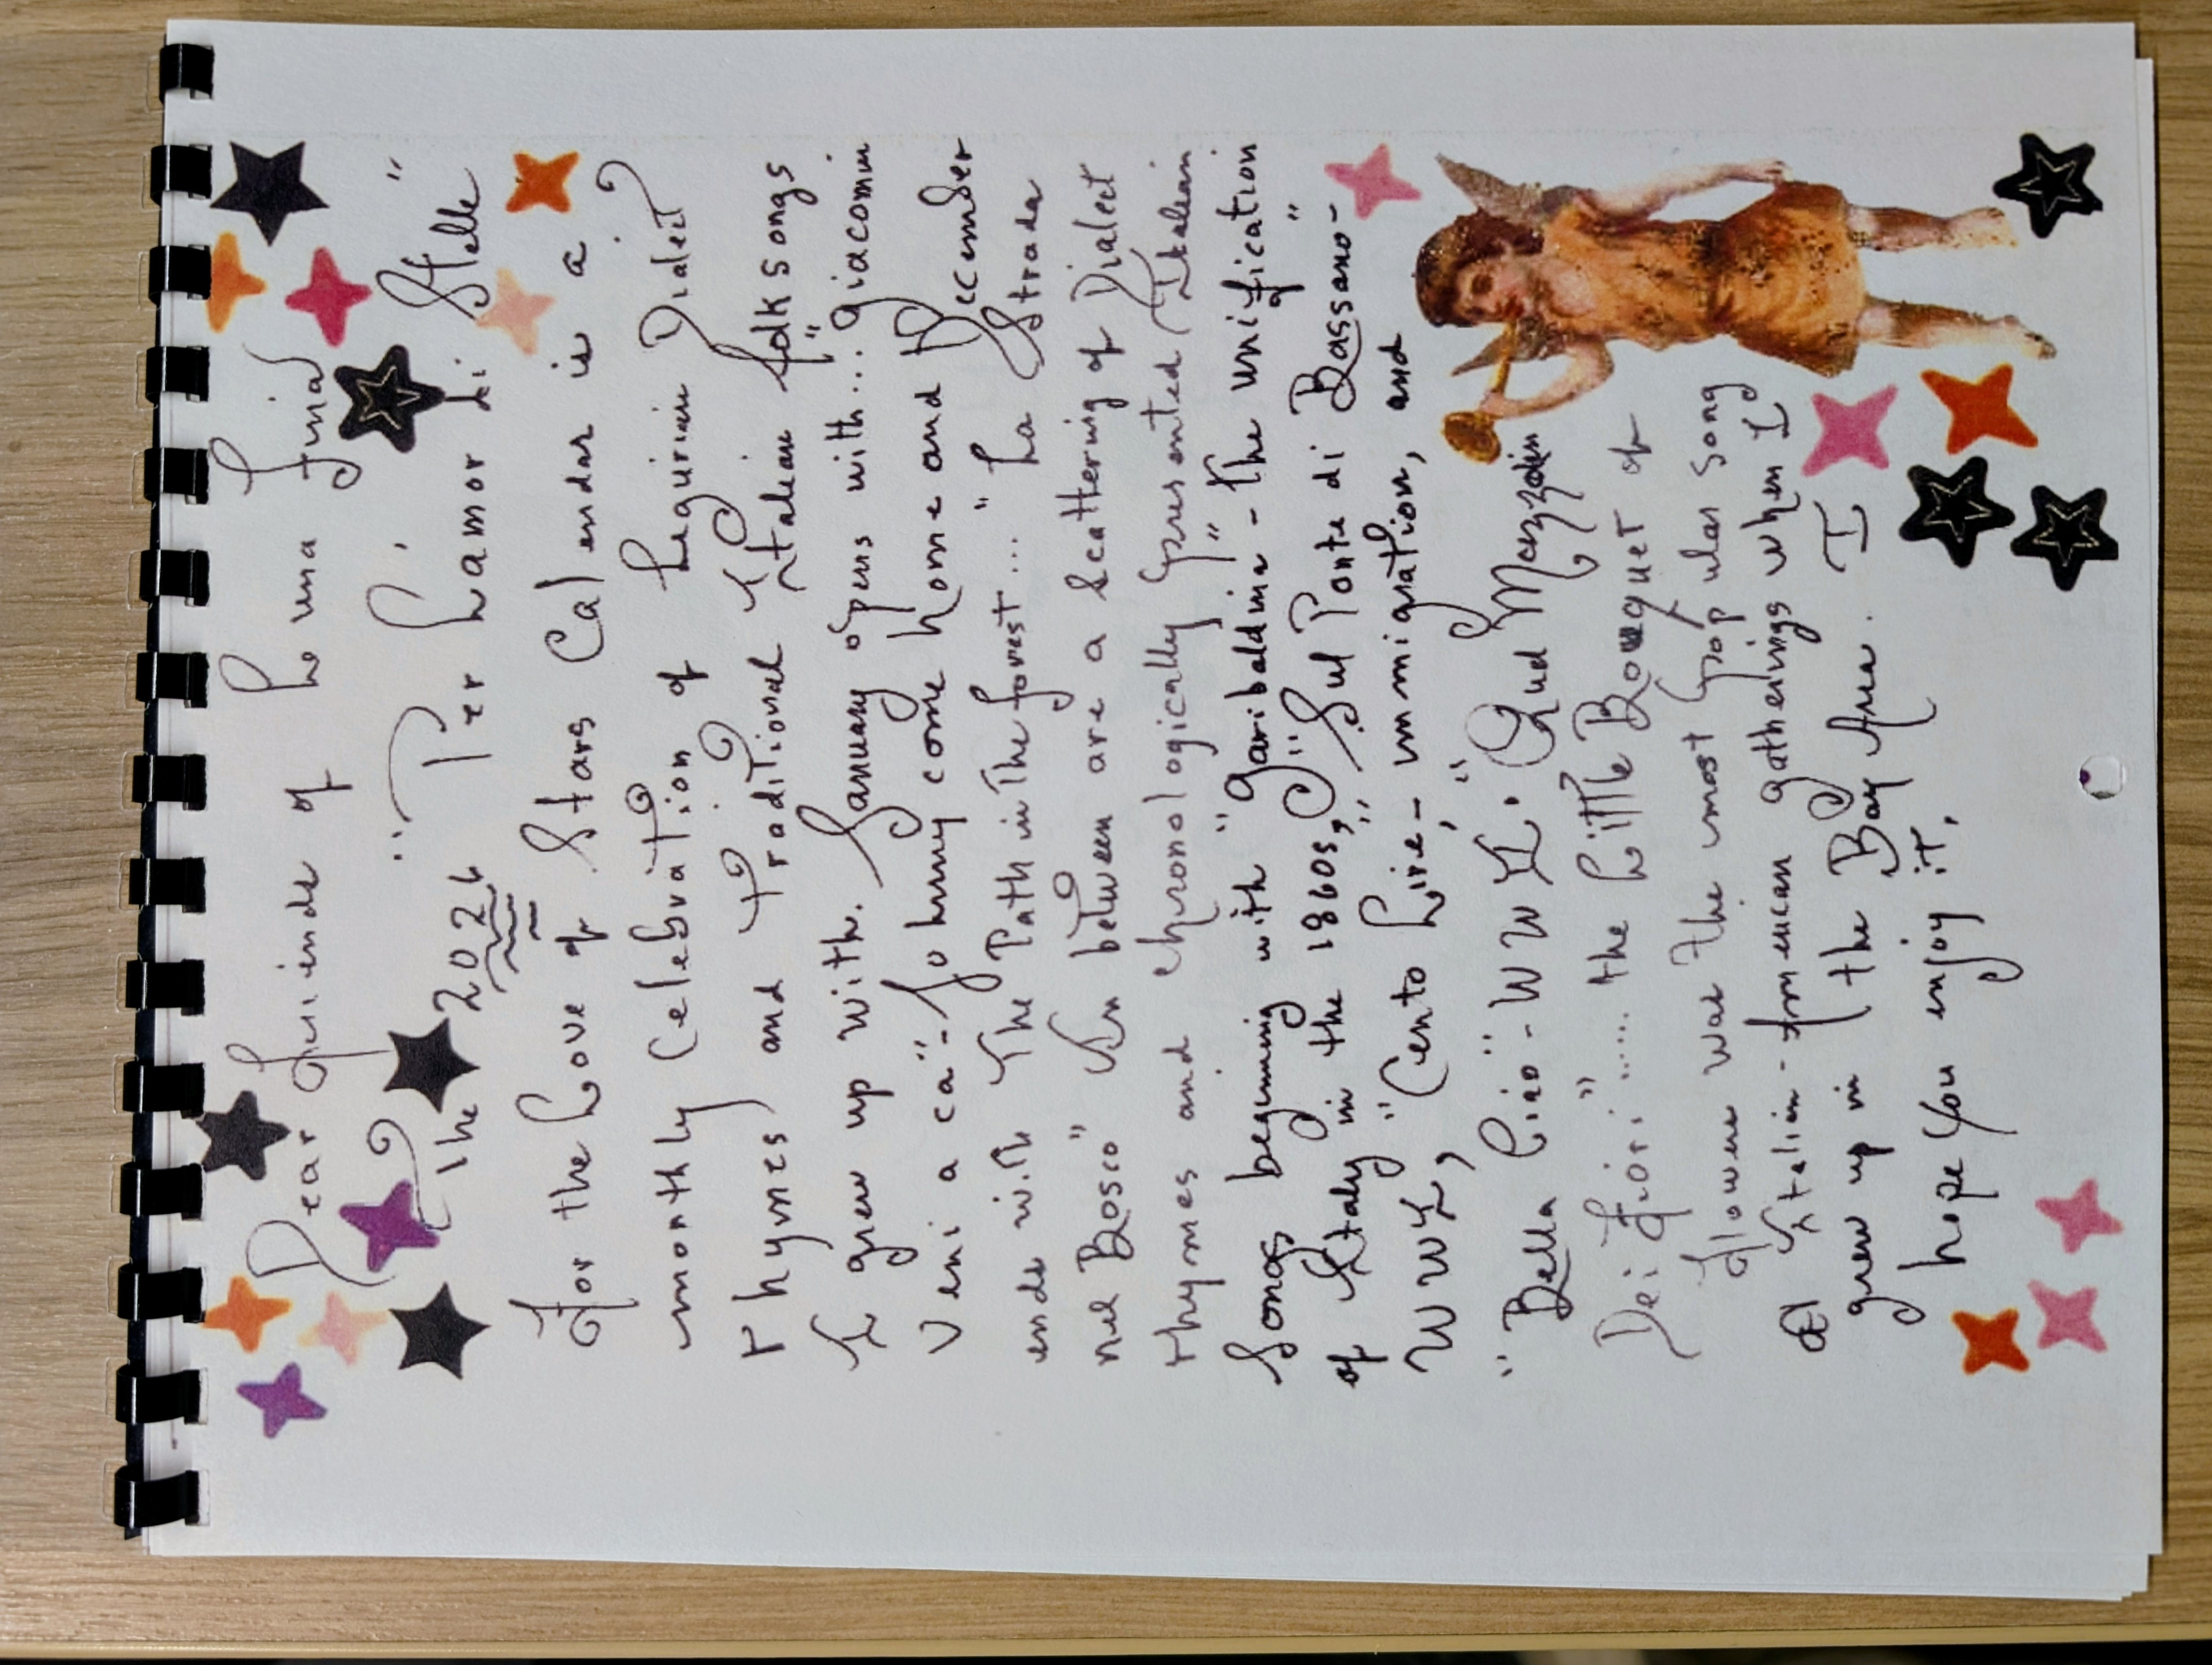 Dear Friends of Luna Fina
"Per L'amor di Stelle"
The 2026
For the Love of Stars Calendar is a
monthly Celebration of Ligurian Dialect
rhymes and traditional Italian folksongs
I grew up with. January opens with... "Giacomin
Veni a ca" - Johnny come home and December
ends with The Path in the forest... "La Strada
nel Bosco" In between are a scattering of Dialect
rhymes and chronologically presented Italian
Songs beginning with "Garibaldina" - the unification
of Italy in the 1860s, "Sul Ponte di Bassano" -
WWI, "Cento Lire - immigration, and
"Bella Ciao" - WWII. Quel Mazzolin
Dei Fiori"..... the Little Bouquet of
flowers was the most popular song
at Italian-American gatherings when I
grew up in the Bay Area. I
hope you enjoy it,